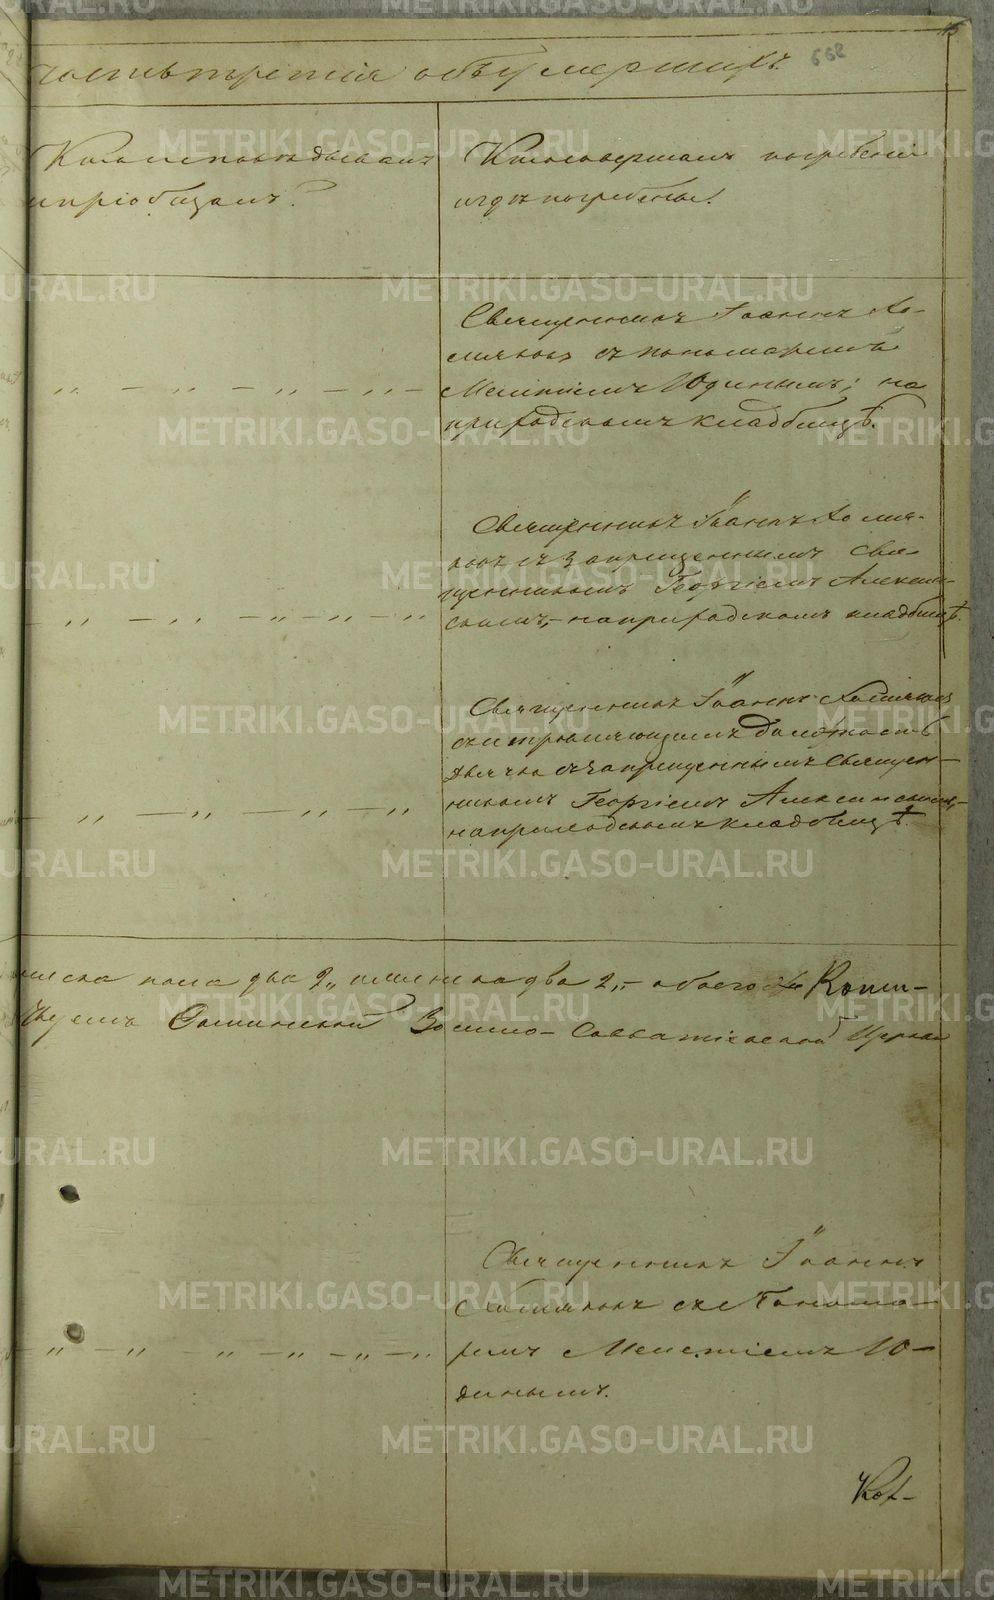 часть третія объ умершихъ
668
Кто исповѣдывалъ
и пріобщалъ?
Кто совершалъ погребеніе
и гдѣ погребены.
Священникъ Іоаннъ Хо-
мяковъ съ пономаремъ
Мелетіемъ Юдинымъ; на
приходскомъ кладбищѣ.
Священникъ Іоаннъ Хомя-
ковъ съ запрещеннымъ свя-
щенникомъ Георгіемъ Алексин-
скимъ, – на приходскомъ кладбищѣ.
Священникъ Іоаннъ Хомяковъ
съ исправляющимъ должность
дьячка съ запрещеннымъ священ-
никомъ Георгіемъ Алексинскимъ, –
на приходскомъ кладбищѣ.
мужеска пола два 2,, женска два 2, – обоего же
Зосимо-Савватіевской Церкви
Священникъ Іоаннъ
Хомяковъ съ Понома-
ремъ Мелетіемъ Ю-
динымъ.
METRIKI.GASO-URAL.RU